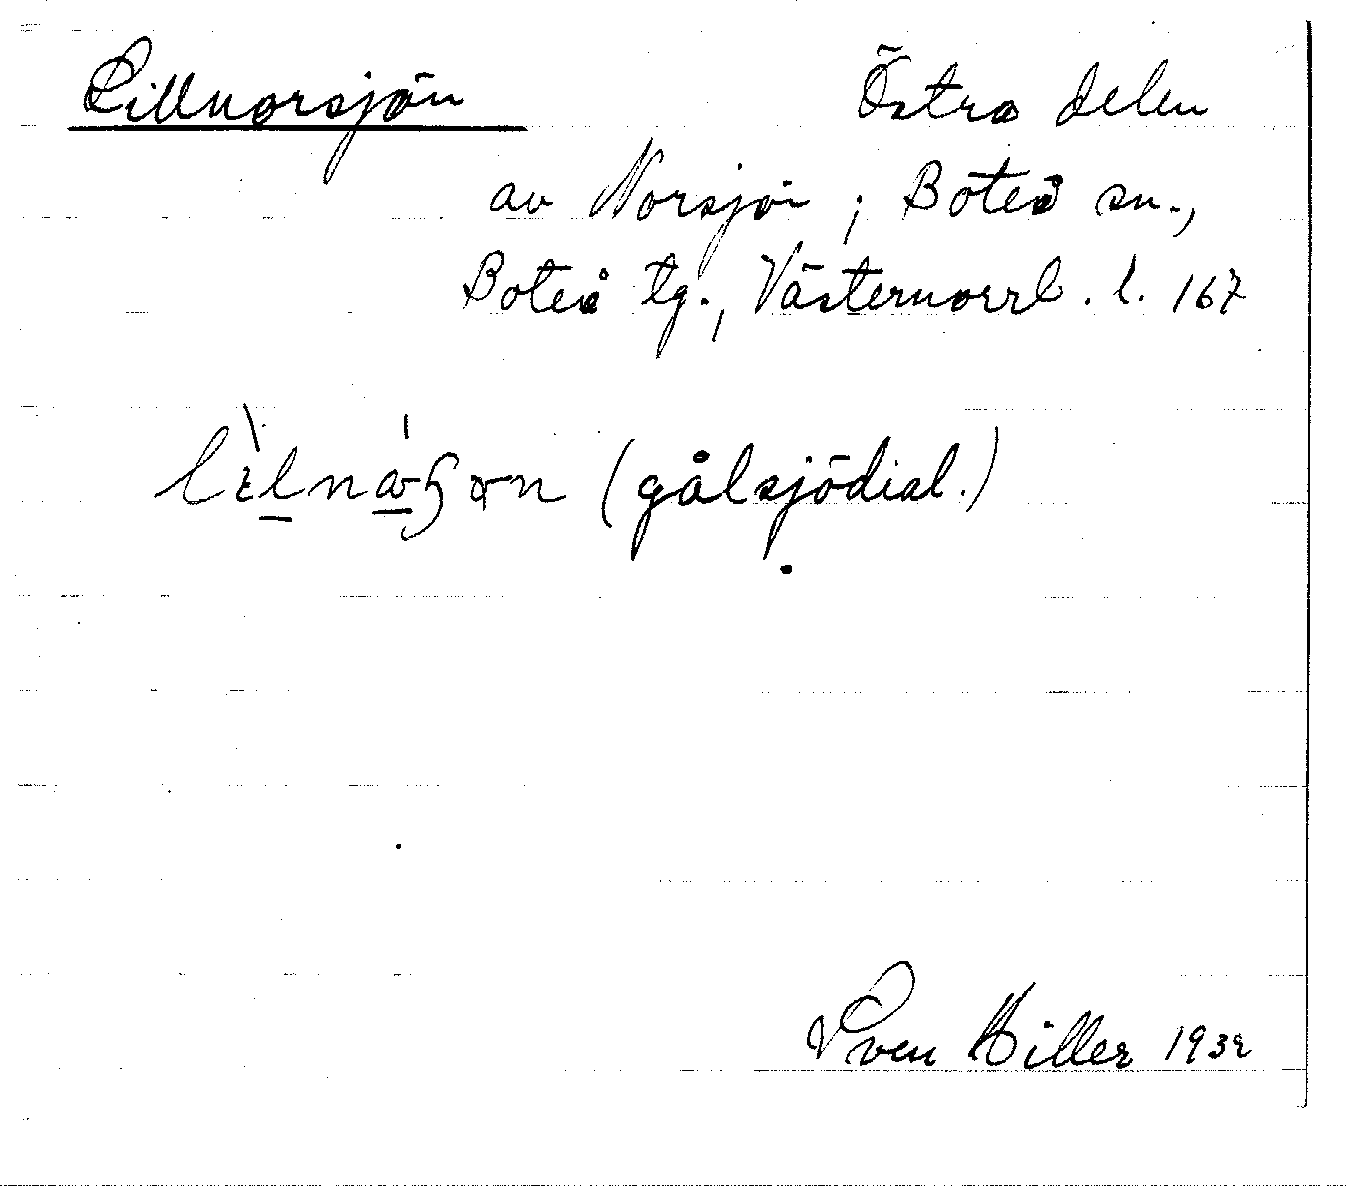 Lillnorsjön Östra delen
av Norsjön; Boteå sn.,
Boteå tg., Västernorrl. l. 167
(gålsjödial.)
Sven Hiller 1932